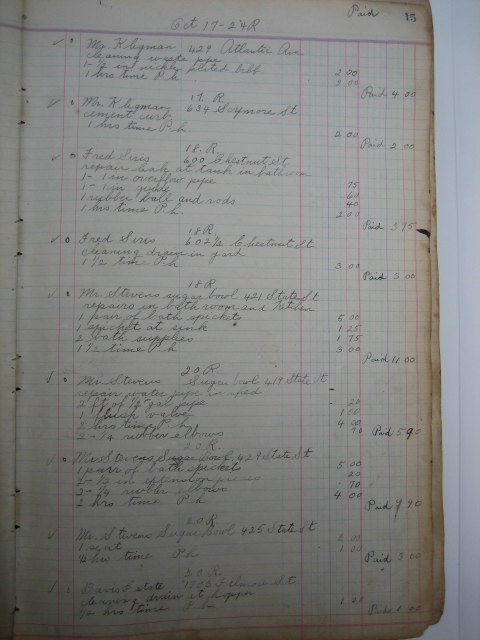 Paid 15
Oct 17-24 R
Mr. Kligman 429 Atlantic Ave
cleaning waste pipe
1-½ in nickle plated bibb 2 00
1 hrs time P.h 2 00
Paid 4 00
17. R
Mr. Kligman 634 Seymore St
cement
1 hrs time P.h. 2 00
Paid 2 00
18. R
Fred Siris 600 Chestnut St
repair leak at tank in bathroom
1-1 in overflow pipe 75
1-1 in guide 60
1 rubber ball and rods 40
1 hrs time P.h 2 00
Paid 3 75
18 R
Fred Siris 602½ Chestnut St
cleaning drain in yard
1½ time P.h 3 00
Paid 3 00
18 R
Mr. Stevens sugar bowl 421 State St
repairs in bath room and kitchen
1 pair of bath spickets 5 00
1 spicket at sink 1 25
2 bath supplies 1 75
1½ time P.h 3 00
Paid 11 00
20 R
Mr. Stevens Sugar bowl 419 State St
repair water pipe in
2 ft of ½" gal pipe 20
1 flush valve
2 hrs time P.h 4 00
2-¼ rubber elbows 70
Paid 5 90
20 R
Mr. Stevens Sugar Bowl 429 State St
1 pair of bath spickets 5 00
2-½ in extension 20
2-¼ rubber elbows 70
2 hrs time P.h 4 00
Paid 9 90
20 R
Mr. Stevens Sugar Bowl 425 State St
1 seat 2 00
½ hrs time P.h 1 00
Paid 3 00
20 R.
Davis Estate 1203 St
cleaning drain at hopper
½ hrs time P.h 1 00
Paid